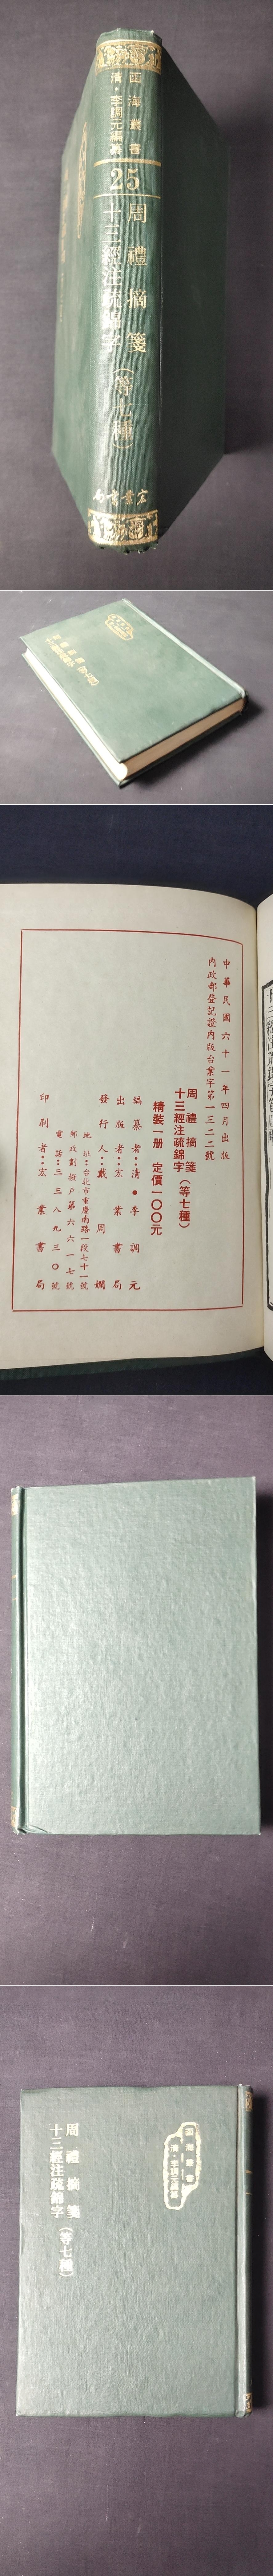 函海叢書
清·李調元編纂
25
周禮摘箋
十三經注疏錦字
（等七種）
宏業書局
中華民國六十一年四月出版
內政部登記證內版台業字第一三二二號
周禮摘箋
十三經注疏錦字（等七種）
精裝一册 定價一〇〇元
編纂者：清·李調元
出版者：宏業書局
發行人：戴周嫻
地址：台北市重慶南路一段七十一號
郵政劃撥戶第六六一七號
電話：三三八九三〇號
印刷者：宏業書局
函海叢書
清·李調元編纂
周禮摘箋
十三經注疏錦字（等七種）